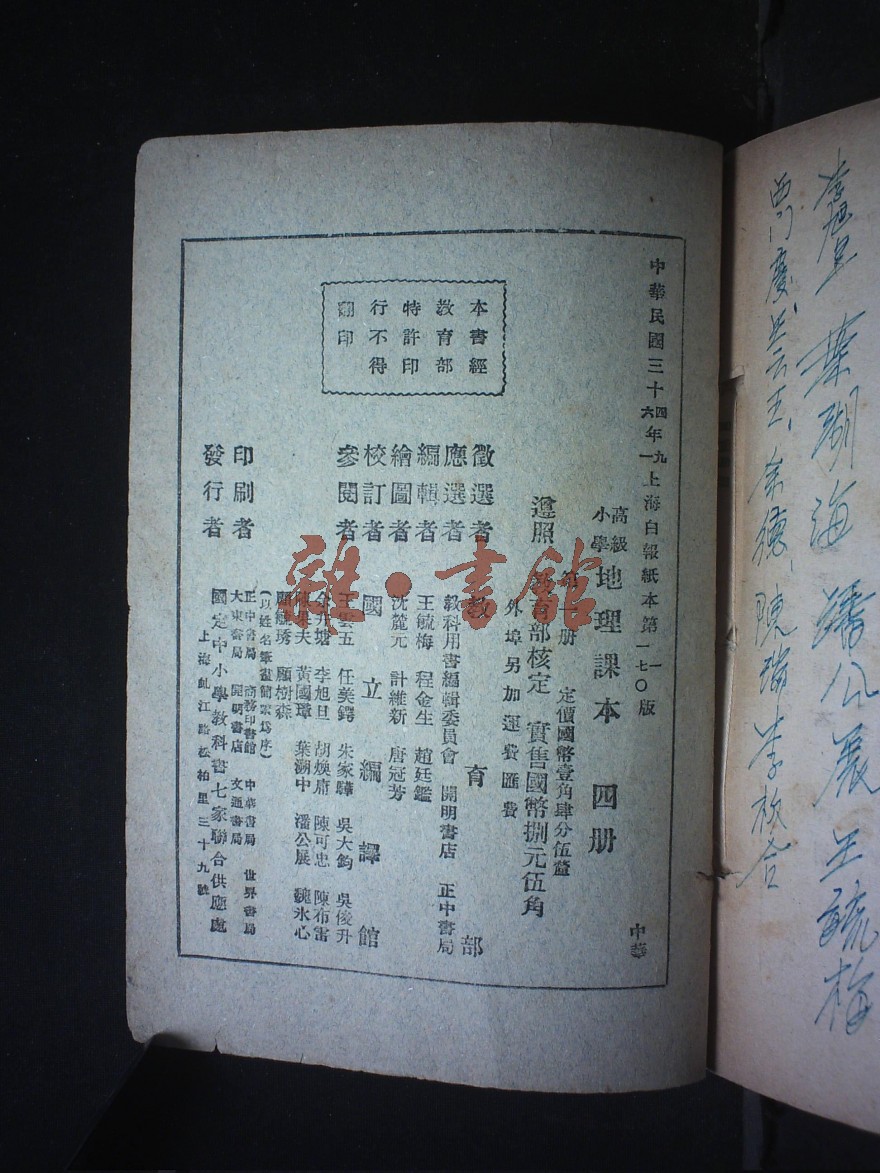 中華民國三十四年九上海白報紙本第一版
六　一　一七〇
高級
小學
地理課本　四册
第一册　定價國幣壹角肆分伍釐
遵照教育部核定　實售國幣捌元伍角
外埠另加運費匯費
中華
本書經
教育部
特許印
行不得
翻印
徵選者　教育部
應選者　教科用書編輯委員會　開明書店　正中書局
編輯者　王毓梅　程金生　趙廷鑑
繪圖者　沈麓元　計維新　唐冠芳
校訂者　國立編譯館
參閱者　王雲五　任美鍔　朱家驊　吳大鈞　吳俊升
余井塘　李旭旦　胡煥庸　陳可忠　陳布雷
陳果夫　黃國璋　葉溯中　潘公展　魏冰心
顧毓琇　顧樹森
(以姓名筆畫簡繁爲序)
印刷者　正中書局　商務印書館　中華書局　世界書局
大東書局　開明書店　文通書局
發行者　國定中小學教科書七家聯合供應處
上海虬江路松柏里三十九號
雜·書館
潘公展　王毓梅
西門慶